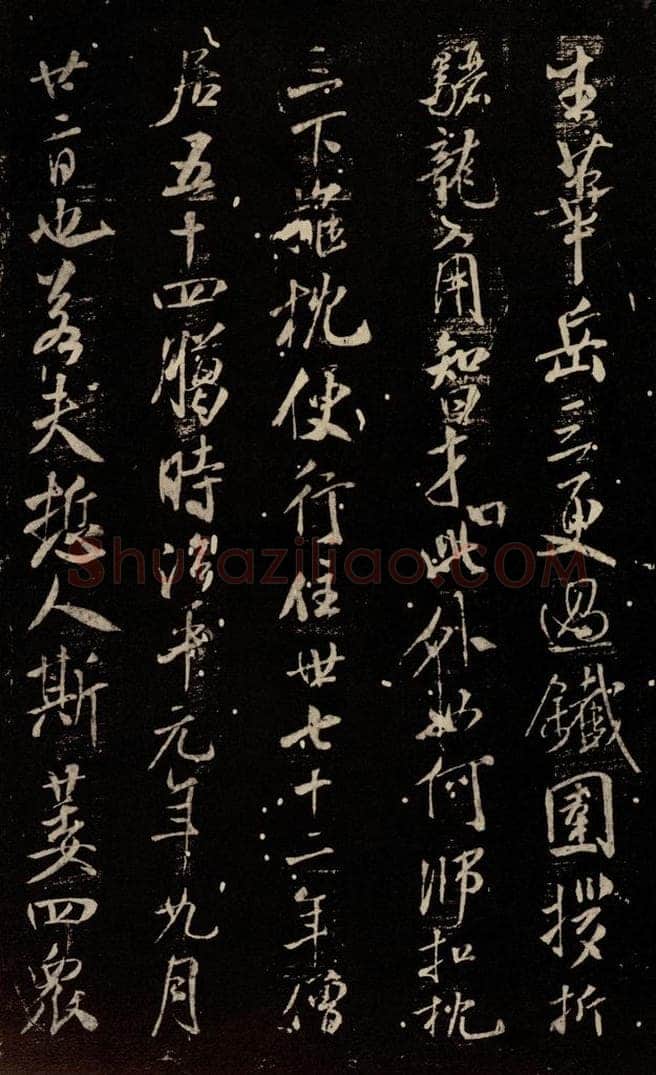 華岳三更過鐵圍拶折
驪龍角智才曰此外如何師扣枕
三下推枕便行住世七十二年僧
居五十四臘時治平元年九月
廿二日也若夫悊人斯萎四衆
Shufaziliao.COM